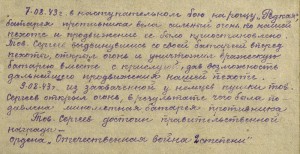 7.08.43г. в наступательном бою на рощу "Редкая"
батарея противника вела сильный огонь по нашей
пехоте и продвижение ее было приостановлено.
Тов. Сергеев выдвинувшись со своей батареей вперед
пехоты, открыл огонь и уничтожил вражескую
батарею вместе с прислугой, дав возможность
дальнейшего продвижения нашей пехоте.
9.08.43г. из захваченной у немцев пушки тов.
Сергеев открыл огонь, в результате чего была по-
давлена минометная батарея противника.
Тов. Сергеев достоин правительственной
награды -
ордена "Отечественная война 2 степени"